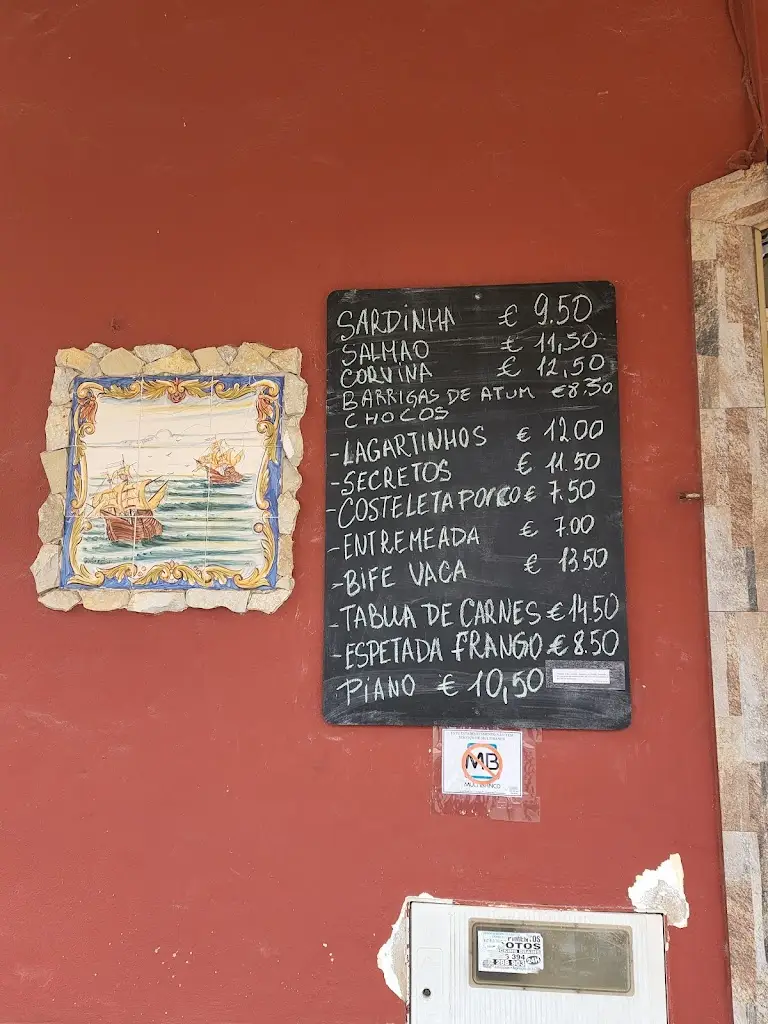 SARDINHA € 9.50
SALMAO € 11,50
CORVINA € 12,50
BARRIGAS DE ATUM €8.50
CHOCOS
-LAGARTINHOS € 12.00
-SECRETOS € 11.50
-COSTELETA PORCO € 7.50
-ENTREMEADA € 7.00
-BIFE VACA € 13.50
-TABUA DE CARNES € 14.50
-ESPETADA FRANGO € 8.50
PIANO € 10,50
MB
MULTIBANCO
OTOS
5 394